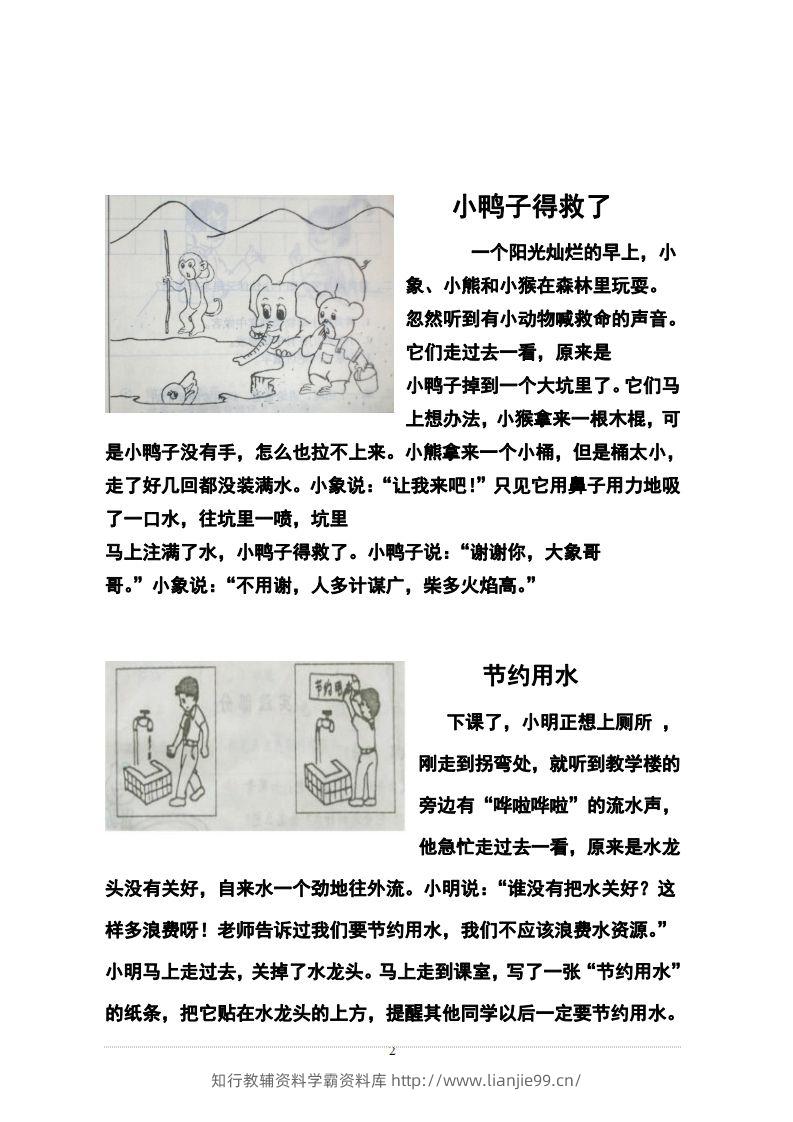 小鸭子得救了
一个阳光灿烂的早上，小
象、小熊和小猴在森林里玩耍。
忽然听到有小动物喊救命的声音。
它们走过去一看，原来是
小鸭子掉到一个大坑里了。它们马
上想办法，小猴拿来一根木棍，可
是小鸭子没有手，怎么也拉不上来。小熊拿来一个小桶，但是桶太小，
走了好几回都没装满水。小象说：“让我来吧！”只见它用鼻子用力地吸
了一口水，往坑里一喷，坑里
马上注满了水，小鸭子得救了。小鸭子说：“谢谢你，大象哥
哥。”小象说：“不用谢，人多计谋广，柴多火焰高。”
节约用水
节约用水
下课了，小明正想上厕所 ，
刚走到拐弯处，就听到教学楼的
旁边有“哗啦哗啦”的流水声，
他急忙走过去一看，原来是水龙
头没有关好，自来水一个劲地往外流。小明说：“谁没有把水关好？这
样多浪费呀！老师告诉过我们要节约用水，我们不应该浪费水资源。”
小明马上走过去，关掉了水龙头。马上走到课室，写了一张“节约用水”
的纸条，把它贴在水龙头的上方，提醒其他同学以后一定要节约用水。
2
知行教辅资料学霸资料库 http://www.lianjie99.cn/